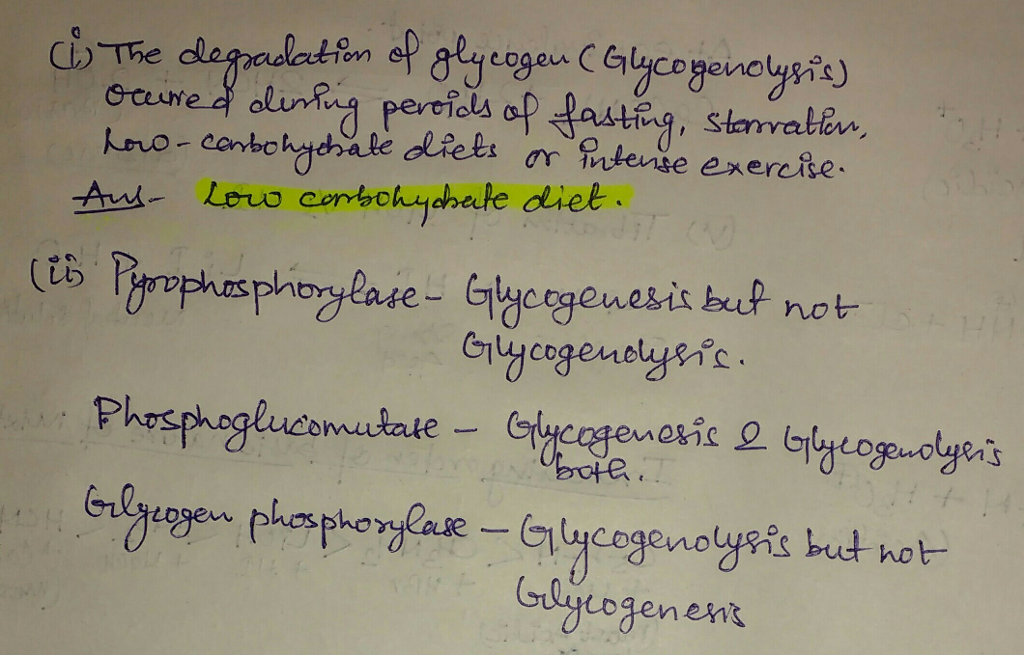 (i) The degradation of glycogen (Glycogenolysis)
occurred during peroids of fasting, starvation,
Low-carbohydrate diets or intense exercise.
Ans- Low carbohydrate diet.
(ii) Pyrophosphorylase - Glycogenesis but not
Glycogenolysis.
Phosphoglucomutase - Glycogenesis & Glycogenolysis
both.
Glycogen phosphorylase - Glycogenolysis but not
Glycogenesis